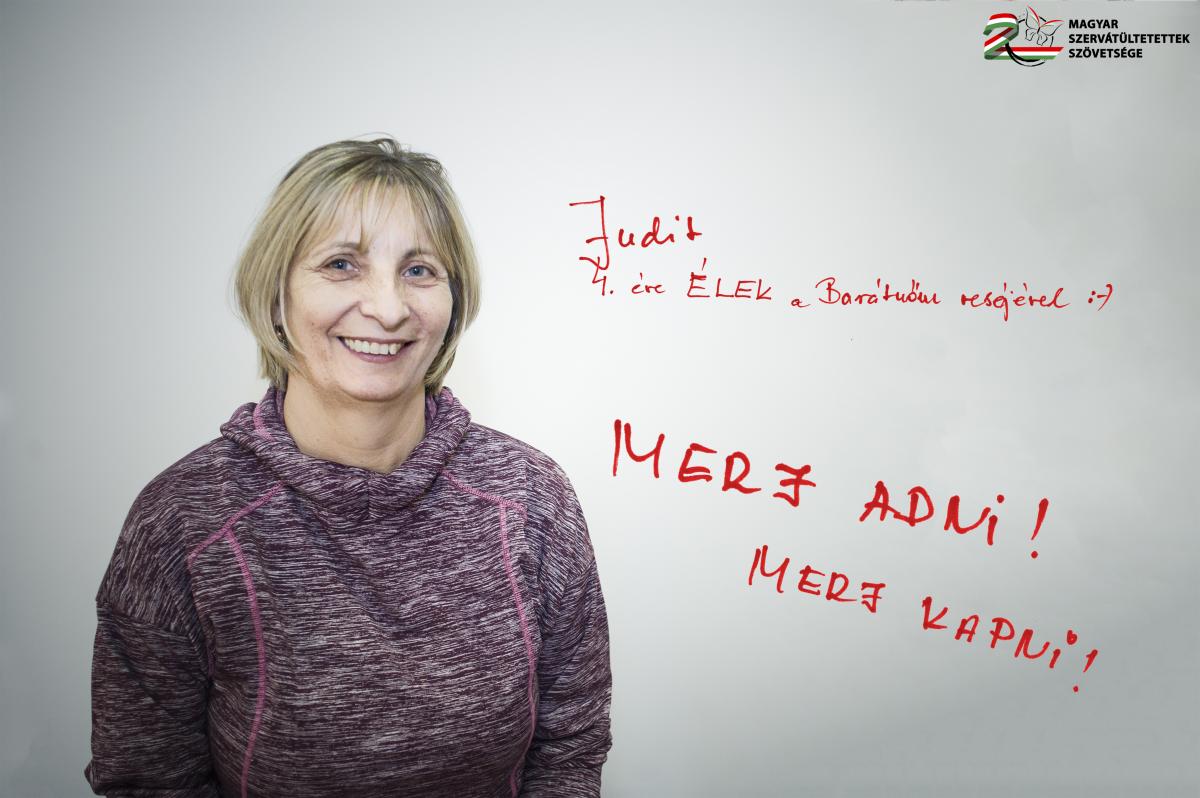 MAGYAR
SZERVÁTÜLTETETTEK
SZÖVETSÉGE
Judit
4. éve ÉLEK a Barátnőm veséjével :-)
MERJ ADNi!
MERJ KAPNi!